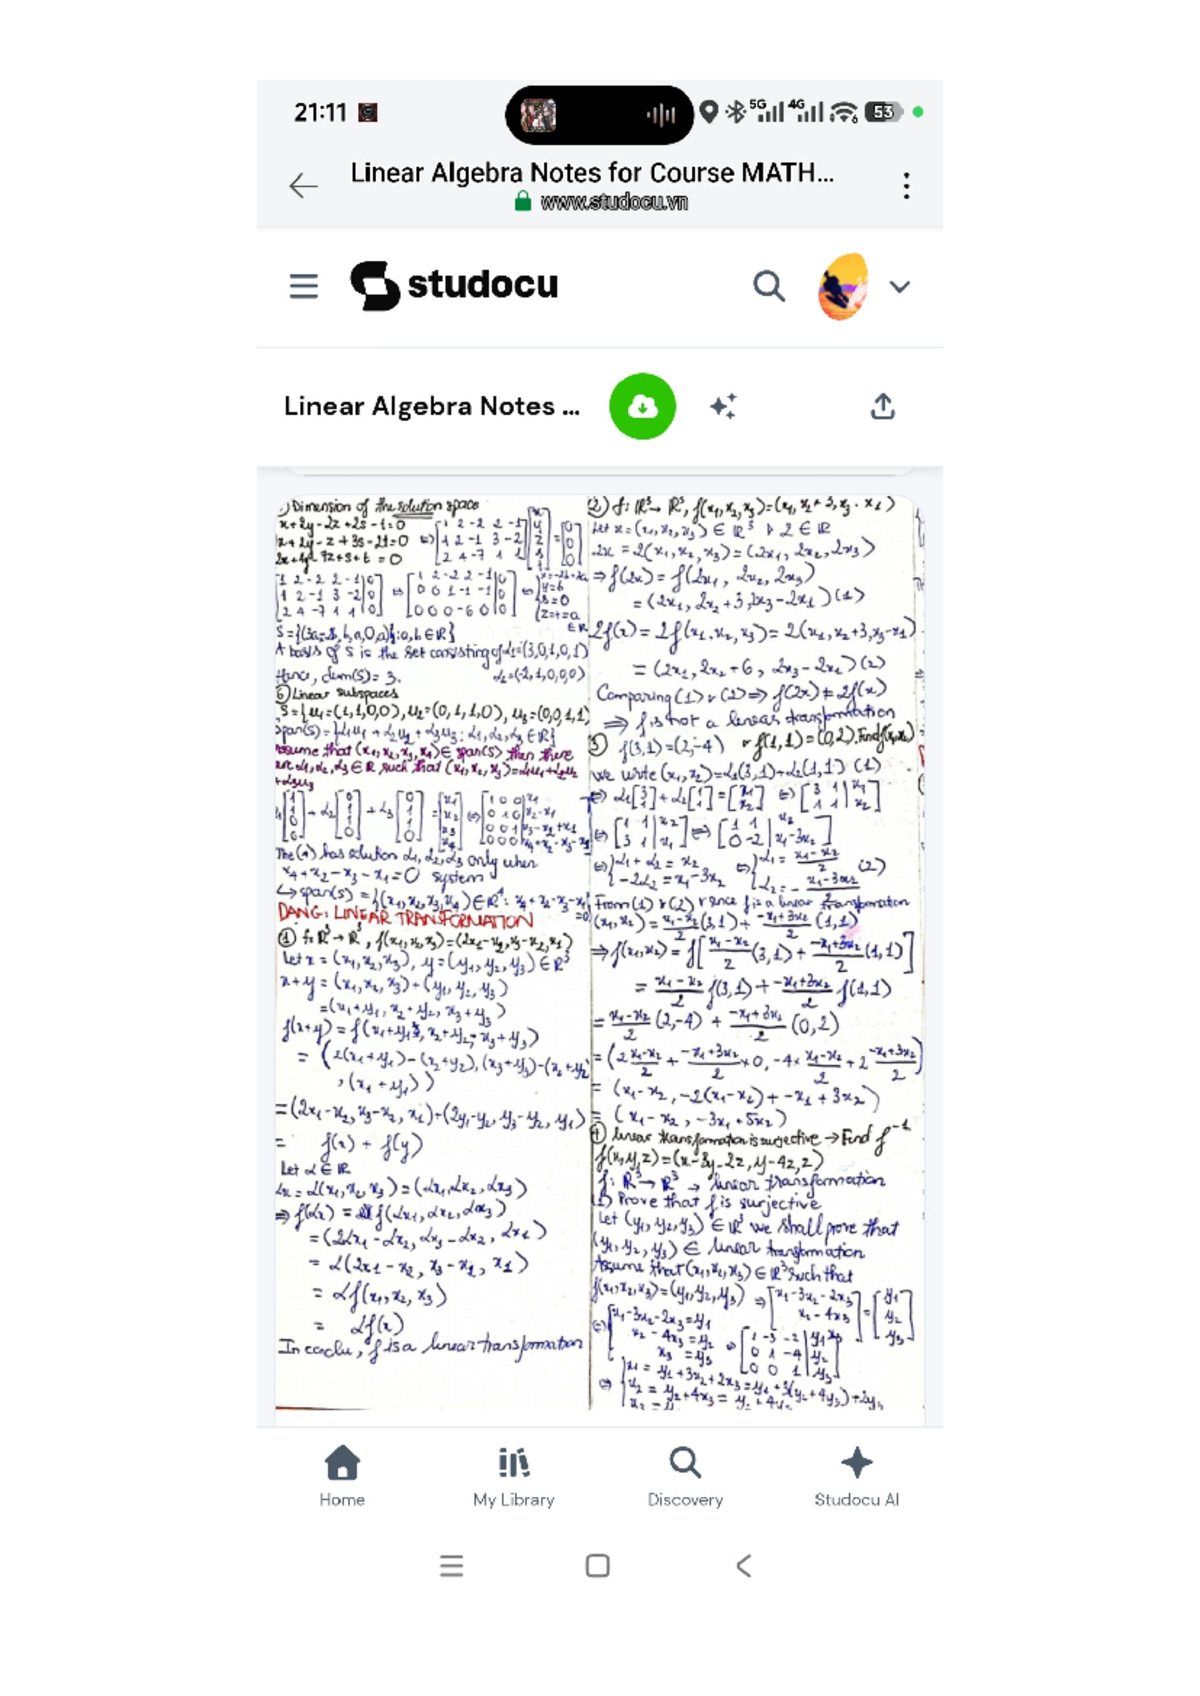 21:11
5G 4G 6 53
Linear Algebra Notes for Course MATH...
www.studocu.vn
studocu
Linear Algebra Notes ...
Dimension of the solution space
x+2y-2z+2s-t=0
x+2y-z+3s-2t=0
S={(3a-2b,b,a,0,a):a,b∈R}
A basis of S is the set consisting of α1=(3,0,1,0,1)
α2=(-2,1,0,0,0)
Hence, dim(S)= 3.
⑥ Linear subspaces
S={u1=(1,1,0,0), u2=(0,1,1,0), u3=(0,0,1,1)
span(S)={α1u1 + α2u2 + α3u3 : α1,α2,α3 ∈ R}
Assume that (x1,x2,x3,x4)∈ span(S) then there
are α1,α2,α3∈R such that (x1,x2,x3)=α1u1+α2u2
+α3u3
The (*) has solution α1,α2,α3 only when
x4+x2-x3-x1=0 system
↳ span(S) = {(x1,x2,x3,x4)∈R⁴: x4+x2-x3-x1
=0}
DẠNG: LINEAR TRANSFORMATION
① f:R³→R³, f(x1,x2,x3)=(2x1-x2,x3-x2,x1)
Let x = (x1,x2,x3), y=(y1,y2,y3)∈R³
x+y = (x1,x2,x3)+(y1,y2,y3)
=(x1+y1, x2+y2, x3+y3)
f(x+y) = f(x1+y1, x2+y2, x3+y3)
= (2(x1+y1)-(x2+y2), (x3+y3)-(x2+y2)
, (x1+y1))
=(2x1-x2,x3-x2,x1)+(2y1-y2,y3-y2,y1)
= f(x) + f(y)
Let α∈R
αx = α(x1,x2,x3)=(αx1,αx2,αx3)
⇒ f(αx) = f(αx1,αx2,αx3)
=(2αx1-αx2, αx3-αx2, αx1)
= α(2x1-x2, x3-x2, x1)
= αf(x1,x2,x3)
= αf(x)
In conclu, f is a linear transformation
② f: R³→R³, f(x1,x2,x3)=(x1, x2+3, x3-x1)
Let x=(x1,x2,x3) ∈ R³ & 2 ∈ R
2x = 2(x1,x2,x3)=(2x1, 2x2, 2x3)
⇒ f(2x) = f(2x1, 2x2, 2x3)
= (2x1, 2x2+3, 2x3-2x1) (1)
2f(x) = 2f(x1,x2,x3)= 2(x1,x2+3,x3-x1)
= (2x1, 2x2+6, 2x3-2x1) (2)
Comparing (1) & (2) ⇒ f(2x) ≠ 2f(x)
⇒ f is not a linear transformation
③ f(3,1)=(2,-4) & f(1,1)=(0,2). Find f(x1,x2)
We write (x1,x2)=α1(3,1)+α2(1,1) (1)
⇔ {α1+α2 = x2 ⇔ {α1 = x1-x2/2 (2)
-2α2 = x1-3x2 α2 = - x1-3x2/2
From (1) & (2) & since f is a linear transformation
(x1,x2) = x1-x2/2 (3,1) + -x1+3x2/2 (1,1)
⇒ f(x1,x2) = f[x1-x2/2 (3,1) + -x1+3x2/2 (1,1)]
= x1-x2/2 f(3,1) + -x1+3x2/2 f(1,1)
= x1-x2/2 (2,-4) + -x1+3x2/2 (0,2)
= (2 x1-x2/2 + -x1+3x2/2 × 0, -4 × x1-x2/2 + 2 -x1+3x2/2)
= (x1-x2, -2(x1-x2) + -x1+3x2)
= (x1-x2, -3x1+5x2)
④ linear transformation is surjective → Find f⁻¹
f(x,y,z)=(x-3y-2z, y-4z, z)
f: R³→R³ → linear transformation
1) Prove that f is surjective
Let (y1,y2,y3) ∈ R³ we shall prove that
(y1,y2,y3) ∈ linear transformation
Assume that (x1,x2,x3)∈R³ such that
f(x1,x2,x3)=(y1,y2,y3) ⇒ [x1-3x2-2x3 / x2-4x3] = [y1 / y2 / y3]
⇔ {x1-3x2-2x3=y1
x2-4x3=y2
x3=y3
⇔ {x1 = y1+3x2+2x3 = y1+3(y2+4y3)+2y3
x2 = y2+4x3 = y2+4y3
Home
My Library
Discovery
Studocu AI